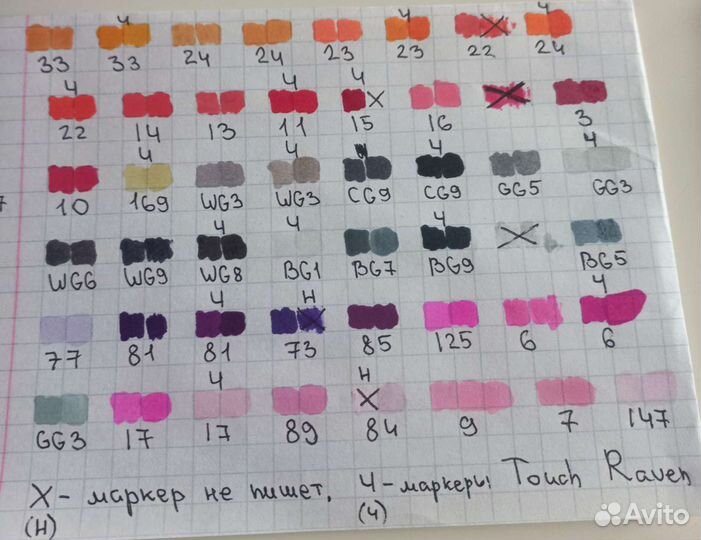 4 4 4
33 33 24 24 23 23 22 24
4 4 4
22 14 13 11 15 X 16 3
4 4 4 4
10 169 WG3 WG3 CG9 CG9 GG5 GG3
4 4 4
WG6 WG9 WG8 BG1 BG7 BG9 BG5
4 Н 4
77 81 81 73 85 125 6 6
4 Н
GG3 17 17 89 84 9 7 147
X - маркер не пишет,
(Н)
Ч - маркеры Touch Raven
(Ч)
Avito